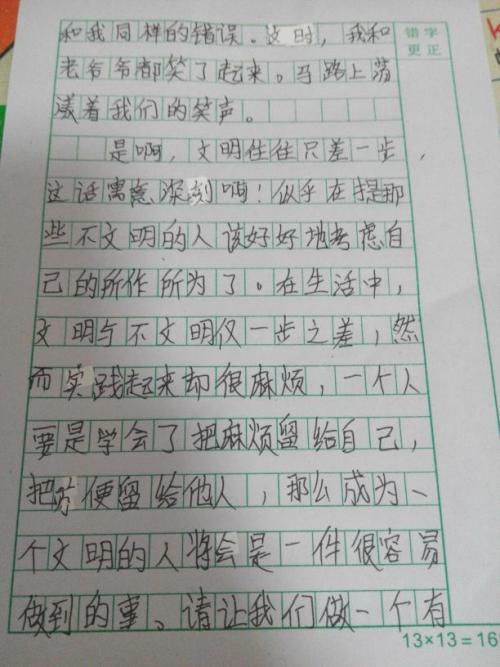 和我同样的错误。这时，我和
错字
更正
老爷爷都笑了起来。马路上荡
漾着我们的笑声。
是啊，文明往往只差一步，
这话寓意深刻啊！似乎在提那
些不文明的人该好好地考虑自
己的所作所为了。在生活中，
文明与不文明仅一步之差，然
而实践起来却很麻烦，一个人
要是学会了把麻烦留给自己，
把方便留给他人，那么成为一
个文明的人将会是一件很容易
做到的事。请让我们做一个有
13×13=16